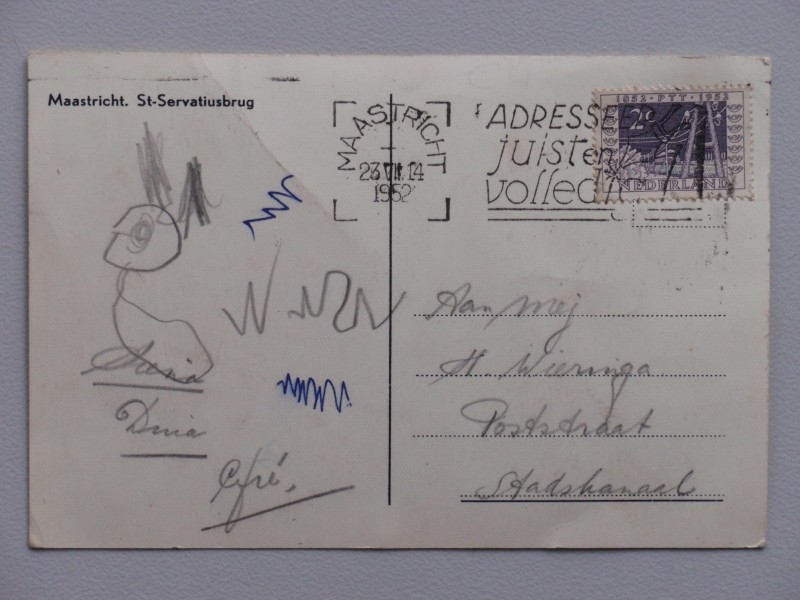 Maastricht. St-Servatiusbrug
MAASTRICHT
23 VII 14
1952
ADRESSE
juiste
volled
1852 · PTT · 1952
2c
NEDERLAND
Aan Mej
H. Wieringa
Poststraat
Stadskanaal
Dinia